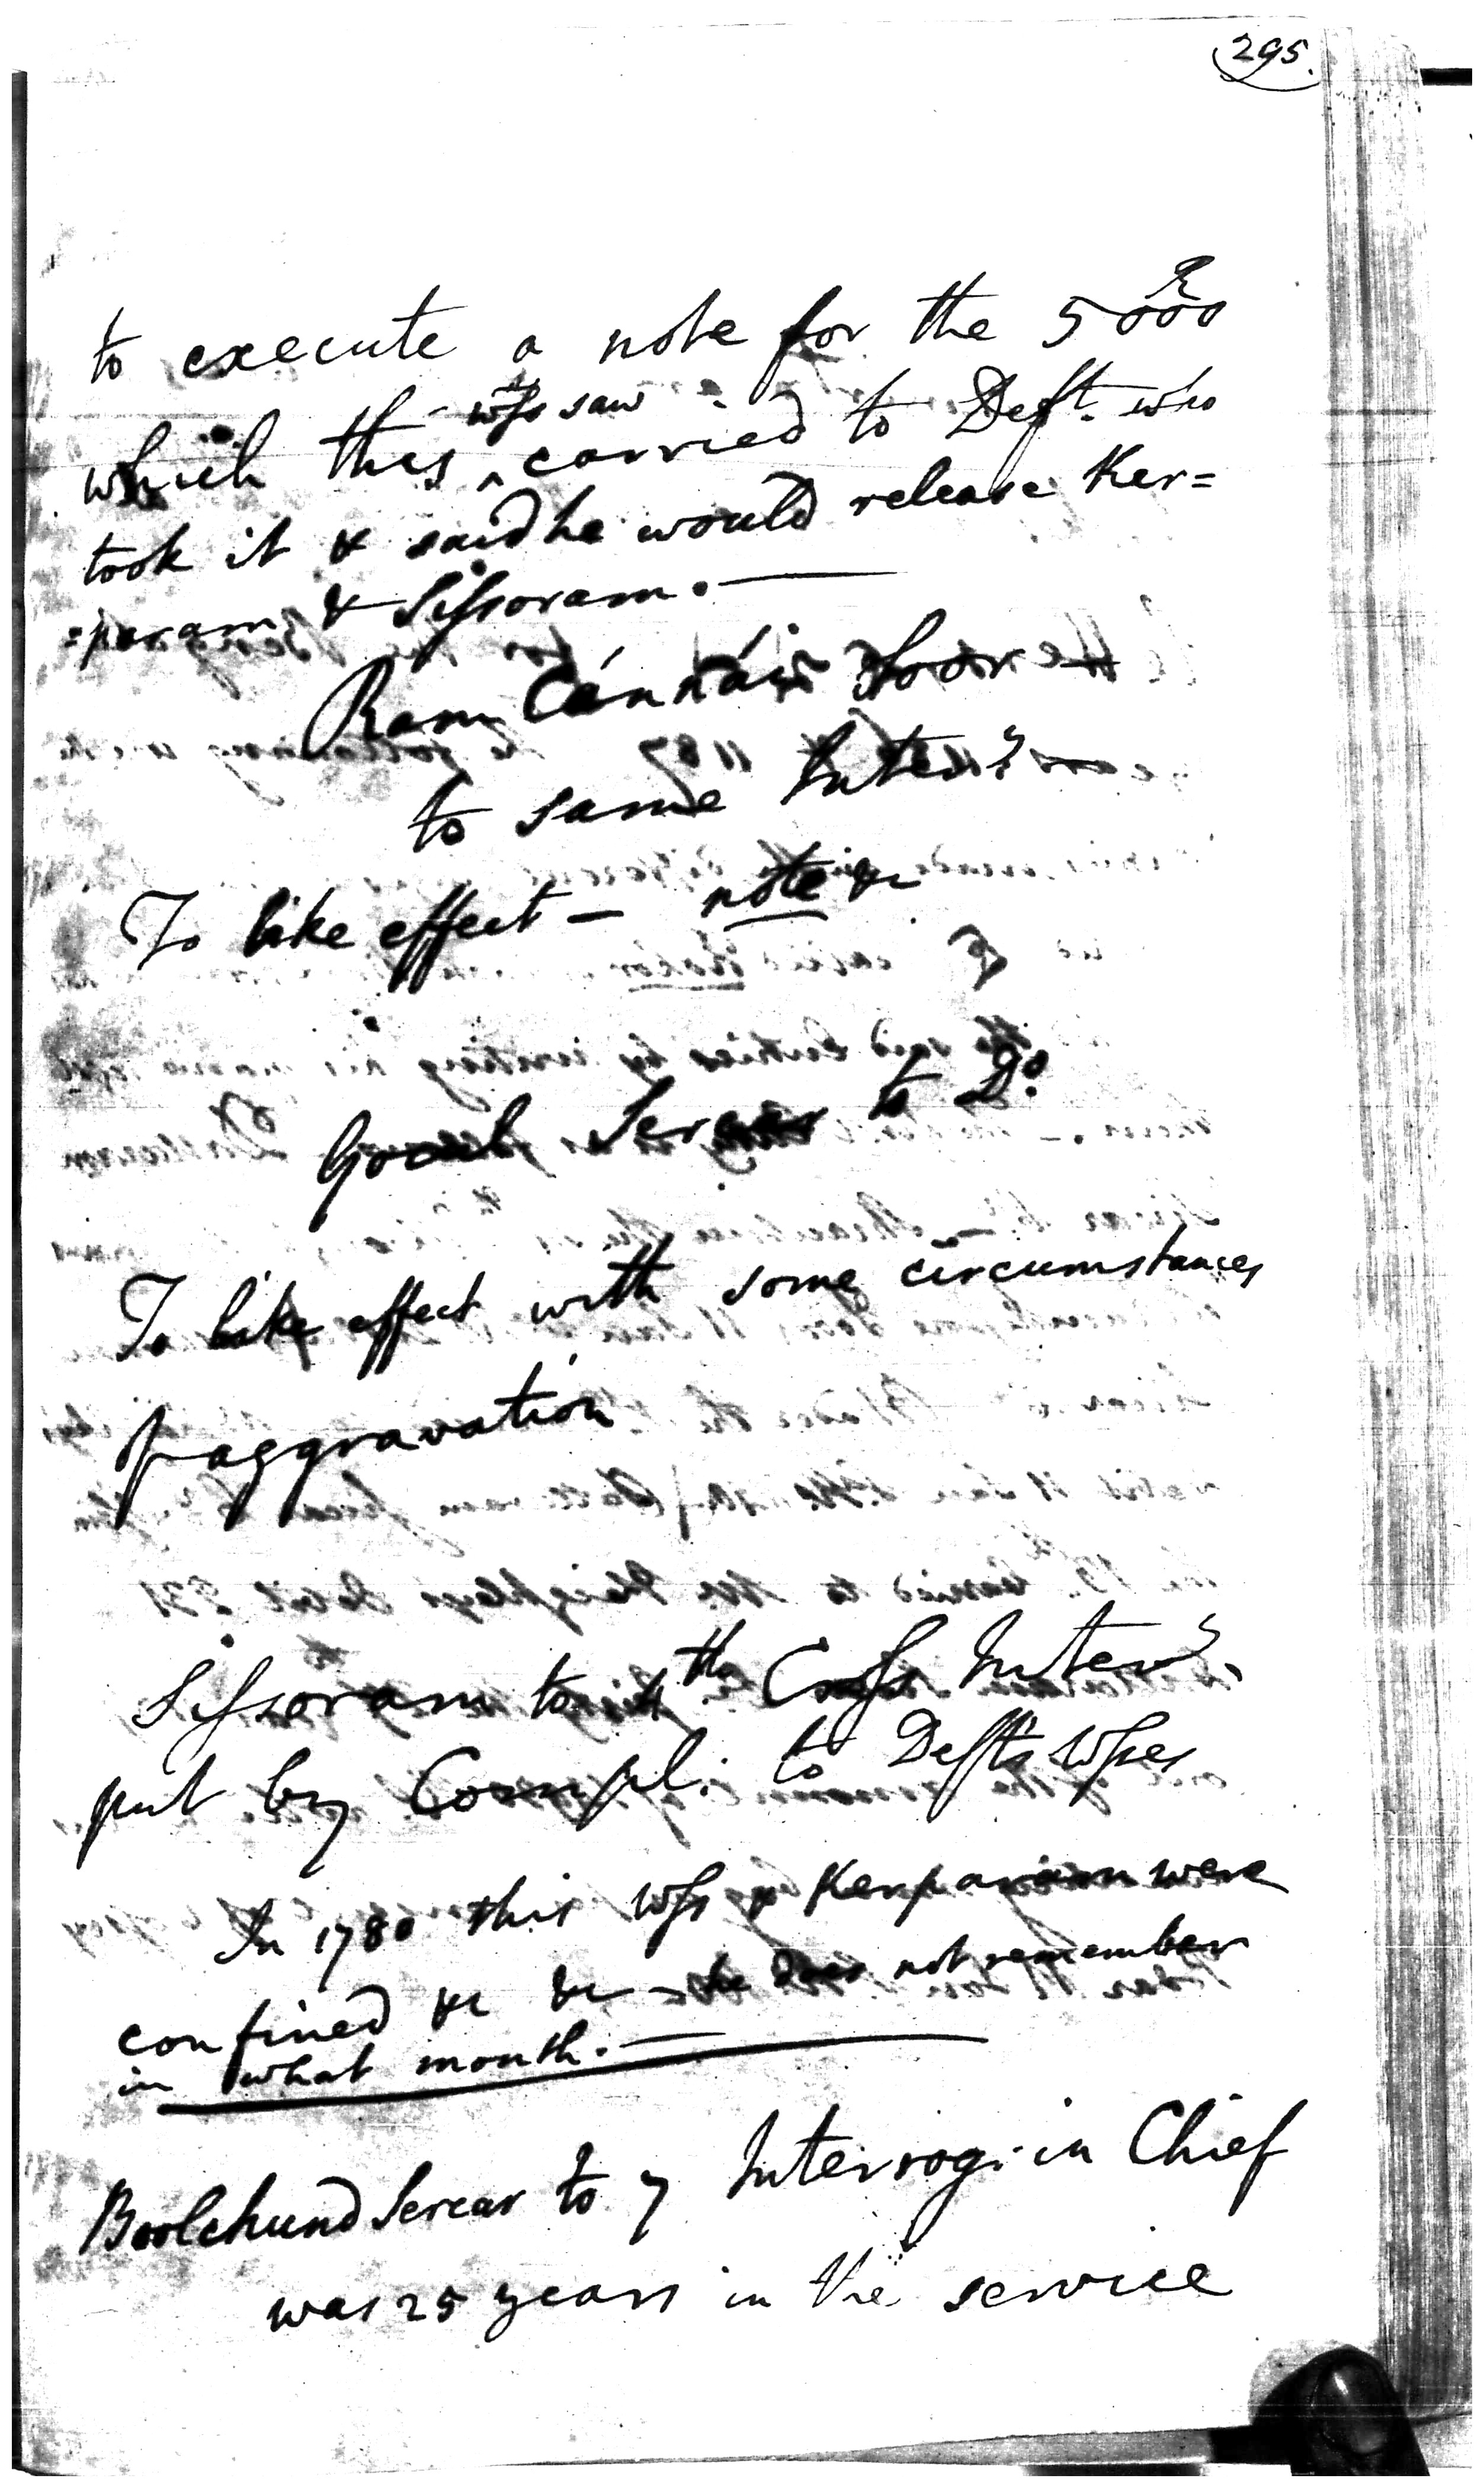 295.
to execute a note for the 5000 R
which this ^ wſs saw carried to Deft. who
took it & said he would release Ker=
=param & Siſsoram. —
Ram Cánnái Soor
to same Interry —
To like effect — note &c
Gocul Sercar to Do.
To like effect with some circumstances
of aggravation
Siſsoram to 4th Croſs Interry.
put by Compl: to Deft's Wſses
In 1780 this Wſs & Kerparam were
confined &c &c — he does not remember
in what month. —
Boolchund Sercar to 7 Interrog: in Chief
was 25 years in the service